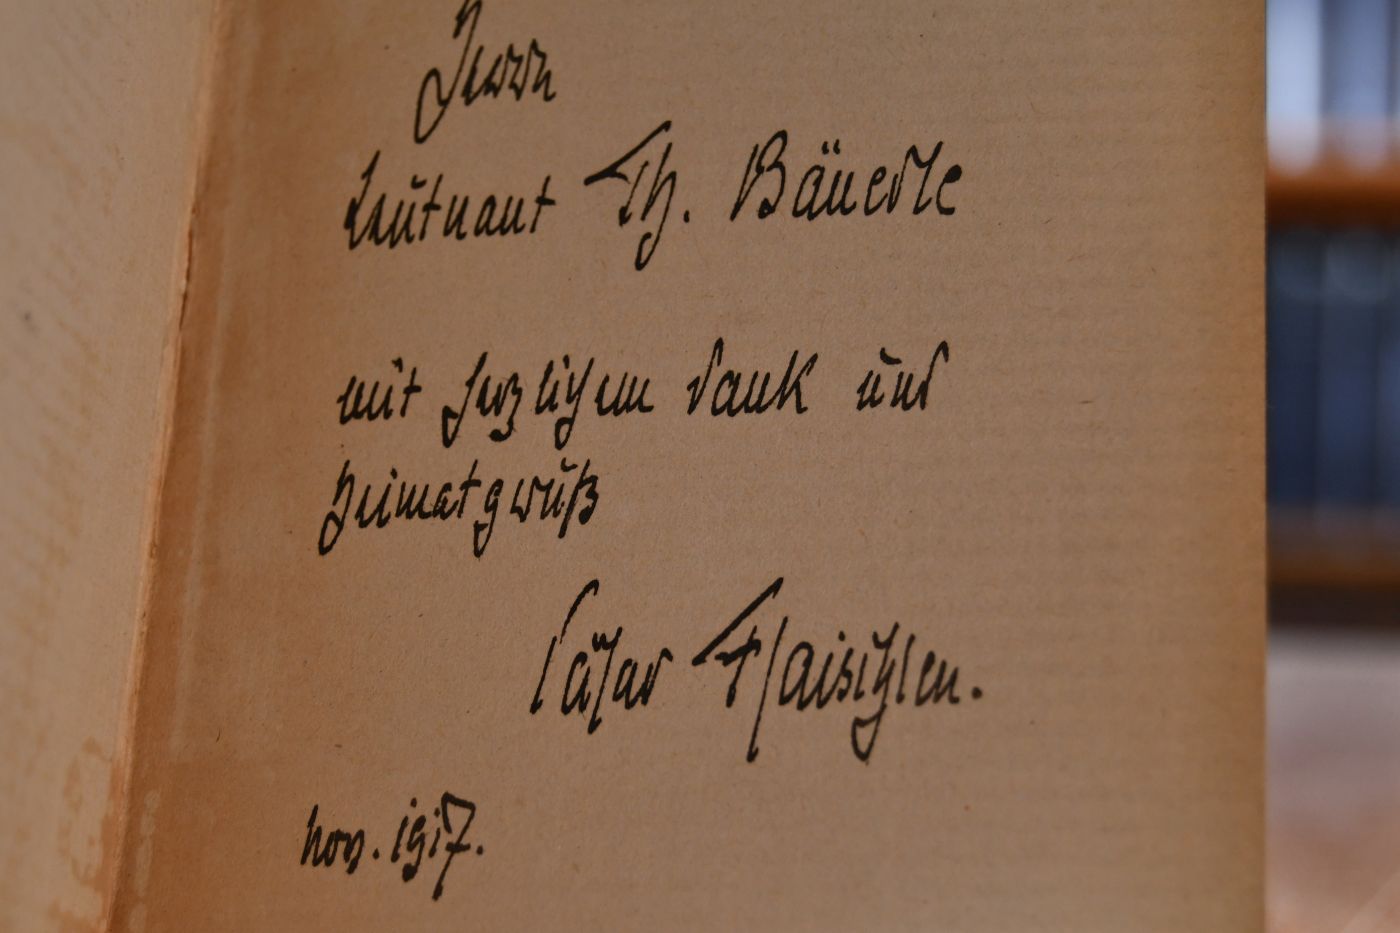 Herrn
Leutnant Th. Bäuerle
mit herzlichem dank und
heimatgruß
Cäsar Flaischlen.
Nov. 1917.